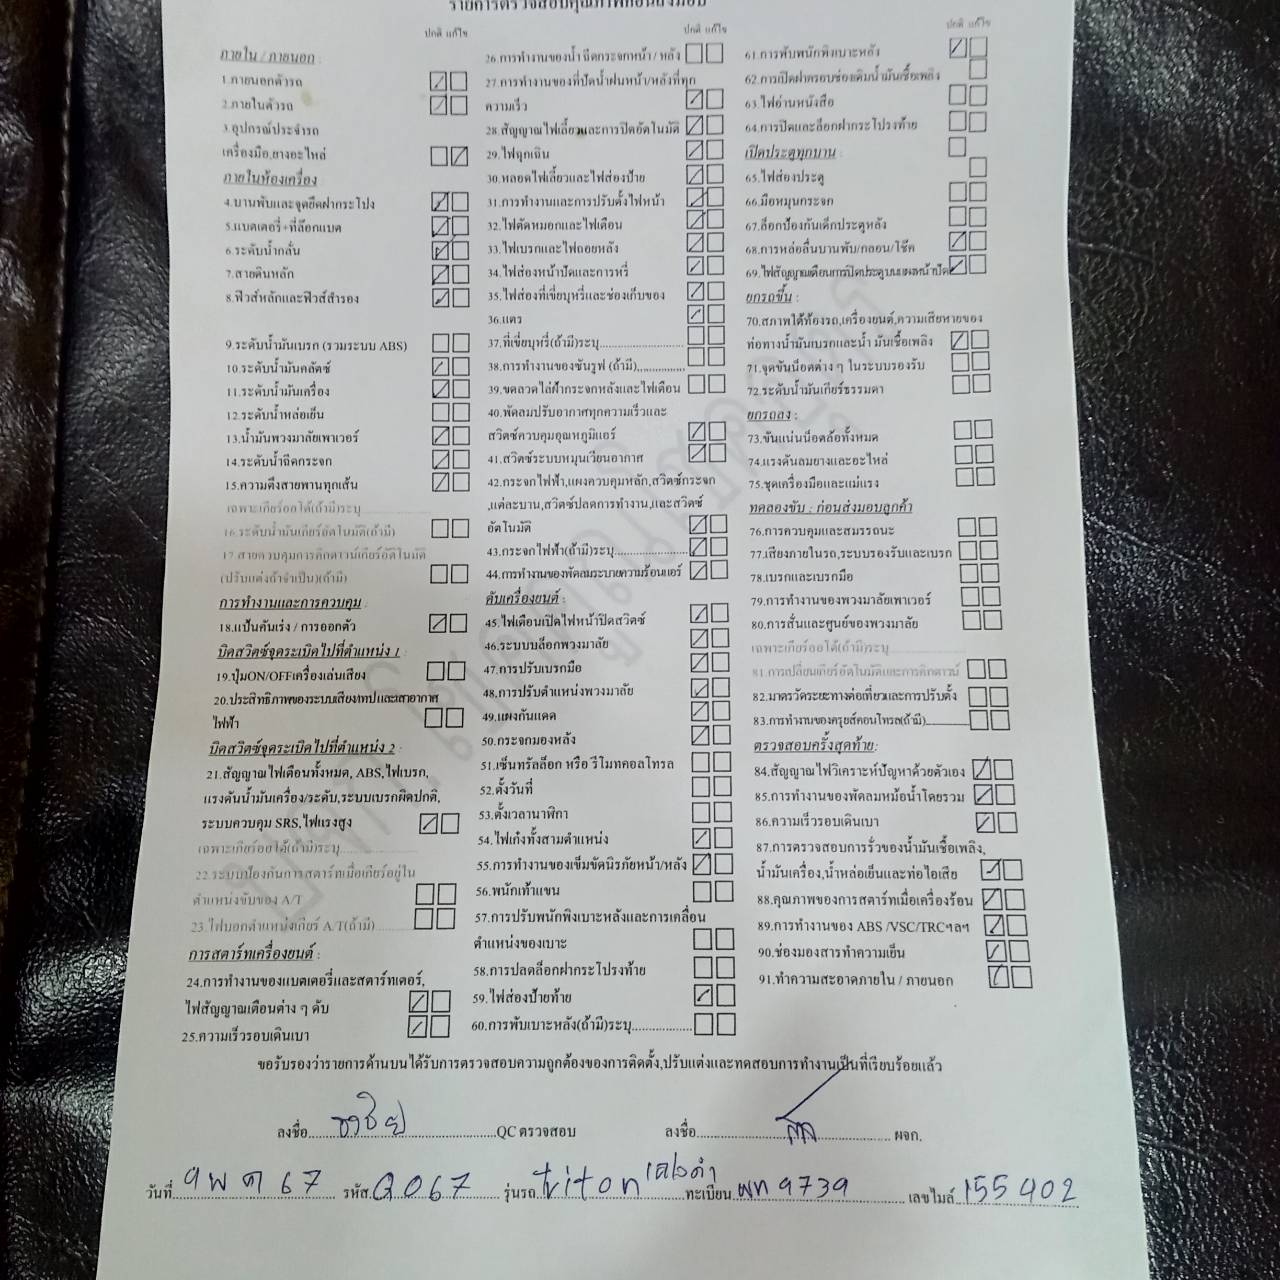 รายการตรวจสอบคุณภาพก่อนส่งมอบ
ปกติ แก้ไข
ภายใน / ภายนอก :
1.ภายนอกตัวรถ
2.ภายในตัวรถ
3.อุปกรณ์ประจำรถ
เครื่องมือ,ยางอะไหล่
ภายในห้องเครื่อง
4.บานพับและจุดยึดฝากระโปง
5.แบตเตอรี่+ที่ล๊อกแบต
6.ระดับน้ำกลั่น
7.สายดินหลัก
8.ฟิวส์หลักและฟิวส์สำรอง
9.ระดับน้ำมันเบรก (รวมระบบ ABS)
10.ระดับน้ำมันคลัตซ์
11.ระดับน้ำมันเครื่อง
12.ระดับน้ำหล่อเย็น
13.น้ำมันพวงมาลัยเพาเวอร์
14.ระดับน้ำฉีดกระจก
15.ความตึงสายพานทุกเส้น
เฉพาะเกียร์ออโต้(ถ้ามี)ระบุ
16.ระดับน้ำมันเกียร์อัตโนมัติ(ถ้ามี)
17.สายควบคุมการคิกดาวน์เกียร์อัติโนมัติ
(ปรับแต่งถ้าจำเป็น)(ถ้ามี)
การทำงานและการควบคุม :
18.แป้นคันเร่ง / การออกตัว
บิดสวิตซ์จุดระเบิดไปที่ตำแหน่ง 1
19.ปุ่มON/OFFเครื่องเล่นเสียง
20.ประสิทธิภาพของระบบเสียง/เทปและเสาอากาศ
ไฟฟ้า
บิดสวิตซ์จุดระเบิดไปที่ตำแหน่ง 2 :
21.สัญญาณไฟเตือนทั้งหมด, ABS,ไฟเบรก,
แรงดันน้ำมันเครื่อง/ระดับ,ระบบเบรกผิดปกติ,
ระบบควบคุม SRS,ไฟแรงสูง
เฉพาะเกียร์ออโต้(ถ้ามี)ระบุ
22.ระบบป้องกันการสตาร์ทเมื่อเกียร์อยู่ใน
ตำแหน่งขับของ A/T
23.ไฟบอกตำแหน่งเกียร์ A/T(ถ้ามี)
การสตาร์ทเครื่องยนต์ :
24.การทำงานของแบตเตอรี่และสตาร์ทเตอร์,
ไฟสัญญาณเตือนต่าง ๆ ดับ
25.ความเร็วรอบเดินเบา
ปกติ แก้ไข
26.การทำงานของน้ำ ฉีดกระจกหน้า / หลัง
27.การทำงานของที่ปัดน้ำฝนหน้า/หลังที่ทุก
ความเร็ว
28.สัญญาณไฟเลี้ยวและการปิดอัตโนมัติ
29.ไฟฉุกเฉิน
30.หลอดไฟเลี้ยวและไฟส่องป้าย
31.การทำงานและการปรับตั้งไฟหน้า
32.ไฟตัดหมอกและไฟเตือน
33.ไฟเบรกและไฟถอยหลัง
34.ไฟส่องหน้าปัดและการหรี่
35.ไฟส่องที่เขี่ยบุหรี่และช่องเก็บของ
36.แตร
37.ที่เขี่ยบุหรี่(ถ้ามี)ระบุ
38.การทำงานของซันรูฟ (ถ้ามี)
39.ขดลวดไล่ฝ้ากระจกหลังและไฟเตือน
40.พัดลมปรับอากาศทุกความเร็วและ
สวิตซ์ควบคุมอุณหภูมิแอร์
41.สวิตซ์ระบบหมุนเวียนอากาศ
42.กระจกไฟฟ้า,แผงควบคุมหลัก,สวิตซ์กระจก
,แต่ละบาน,สวิตซ์ปลดการทำงาน,และสวิตซ์
อัตโนมัติ
43.กระจกไฟฟ้า(ถ้ามี)ระบุ
44.การทำงานของพัดลมระบายความร้อนแอร์
ดับเครื่องยนต์ :
45.ไฟเตือนเปิดไฟหน้าปิดสวิตซ์
46.ระบบบล๊อกพวงมาลัย
47.การปรับเบรกมือ
48.การปรับตำแหน่งพวงมาลัย
49.แผงกันแดด
50.กระจกมองหลัง
51.เซ็นทรัลล๊อก หรือ รีโมทคอลโทรล
52.ตั้งวันที่
53.ตั้งเวลานาฬิกา
54.ไฟเก๋งทั้งสามตำแหน่ง
55.การทำงานของเข็มขัดนิรภัยหน้า/หลัง
56.พนักเท้าแขน
57.การปรับพนักพิงเบาะหลังและการเคลื่อน
ตำแหน่งของเบาะ
58.การปลดล๊อกฝากระโปรงท้าย
59.ไฟส่องป้ายท้าย
60.การพับเบาะหลัง(ถ้ามี)ระบุ
ปกติ แก้ไข
61.การพับพนักพิงเบาะหลัง
62.การเปิดฝาครอบช่องเติมน้ำมันเชื้อเพลิง
63.ไฟอ่านหนังสือ
64.การปิดและล๊อกฝากระโปรงท้าย
เปิดประตูทุกบาน :
65.ไฟส่องประตู
66.มือหมุนกระจก
67.ล๊อกป้องกันเด็กประตูหลัง
68.การหล่อลื่นบานพับ/กลอน/โช๊ค
69.ไฟสัญญาณเตือนการปิดประตูบนแผงหน้าปัด
ยกรถขึ้น :
70.สภาพใต้ท้องรถ,เครื่องยนต์,ความเสียหายของ
ท่อทางน้ำมันเบรกและน้ำ มันเชื้อเพลิง
71.จุดขันน็อตต่าง ๆ ในระบบรองรับ
72.ระดับน้ำมันเกียร์ธรรมดา
ยกรถลง :
73.ขันแน่นน็อตล้อทั้งหมด
74.แรงดันลมยางและอะไหล่
75.ชุดเครื่องมือและแม่แรง
ทดลองขับ : ก่อนส่งมอบลูกค้า
76.การควบคุมและสมรรถนะ
77.เสียงภายในรถ,ระบบรองรับและเบรก
78.เบรกและเบรกมือ
79.การทำงานของพวงมาลัยเพาเวอร์
80.การสั่นและศูนย์ของพวงมาลัย
เฉพาะเกียร์ออโต้(ถ้ามี)ระบุ
81.การเปลี่ยนเกียร์อัตโนมัติและการคิกดาวน์
82.มาตรวัดระยะทางต่อเที่ยวและการปรับตั้ง
83.การทำงานของครุยส์คอนโทรล(ถ้ามี)
ตรวจสอบครั้งสุดท้าย:
84.สัญญาณไฟวิเคราะห์ปัญหาด้วยตัวเอง
85.การทำงานของพัดลมหม้อน้ำโดยรวม
86.ความเร็วรอบเดินเบา
87.การตรวจสอบการรั่วของน้ำมันเชื้อเพลิง,
น้ำมันเครื่อง,น้ำหล่อเย็นและท่อไอเสีย
88.คุณภาพของการสตาร์ทเมื่อเครื่องร้อน
89.การทำงานของ ABS /VSC/TRCฯลฯ
90.ช่องมองสารทำความเย็น
91.ทำความสะอาดภายใน / ภายนอก
ขอรับรองว่ารายการด้านบนได้รับการตรวจสอบความถูกต้องของการติดตั้ง,ปรับแต่งและทดสอบการทำงานเป็นที่เรียบร้อยแล้ว
ลงชื่อ QC ตรวจสอบ ลงชื่อ ผจก.
วันที่ 9 พ ค 67 รหัส Q067 รุ่นรถ triton ทะเบียน ผท 9739 เลขไมล์ 155402